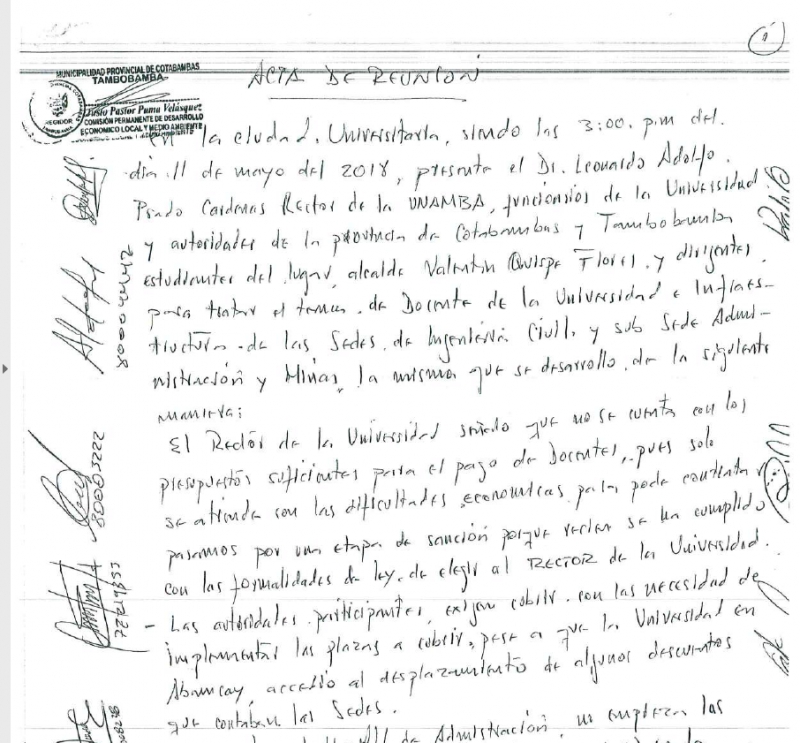 1
MUNICIPALIDAD PROVINCIAL DE COTABAMBAS
TAMBOBAMBA
Pastor Puma Velásquez
REGIDOR
COMISIÓN PERMANENTE DE DESARROLLO
ECONOMICO LOCAL Y MEDIO AMBIENTE
ACTA DE REUNION
En la ciudad, Universitaria, siendo las 3:00. p.m del.
día 11 de mayo del 2018, presente el Dr. Leonardo Adolfo.
Prado Cardenas Rector de la UNAMBA, funcionarios de la Universidad
y autoridades de la provincia de Cotabambas y Tambobamba
estudiantes del lugar, alcalde Valentin Quispe Flores, y dirigentes.
para tratar el tema. de Docente de la Universidad e Infraes-
tructura de las Sedes. de Ingeniería Civil, y sub Sede Admi-
nistración y Minas, la misma que se desarrollo, de la siguiente
manera:
El Rector de la Universidad señalo que no se cuenta con los
presupuestos suficientes para el pago de Docentes, pues solo
se atiende con las dificultades economicas para poder contratar y
pasamos por una etapa de sanción porque recien se ha cumplido
con las formalidades de ley, de elegir al RECTOR de la Universidad.
- Las autoridades participantes, exigen cubrir. con las necesidad de
implementar las plazas a cubrir, pese a que la Universidad en
Abancay, accedió al desplazamiento de algunos descuentos
que contaban las Sedes.
de Administración, no emplezan las
80004442
80003222
72719353